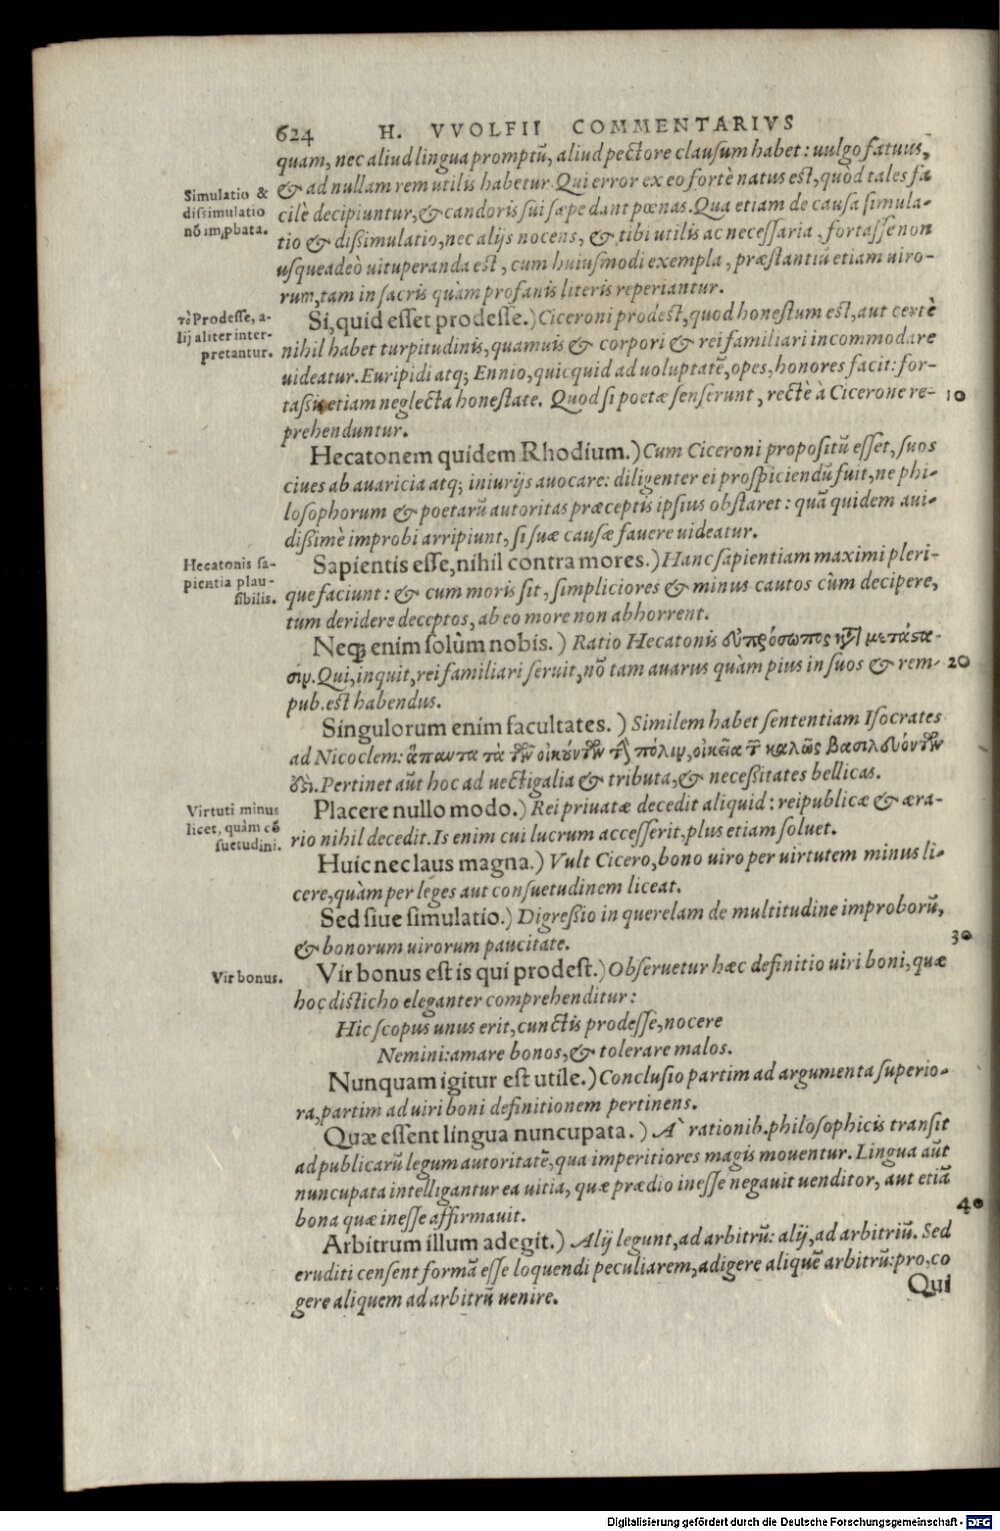 624 H. VVOLFII COMMENTARIVS
quam, nec aliud lingua promptũ, aliud pectore clausum habet: uulgo fatuus,
& ad nullam rem utilis habetur. Qui error ex eo fortè natus est, quòd tales fa
cilè decipiuntur, & candoris sui sæpe dant pœnas. Qua etiam de causa simula-
tio & dissimulatio, nec alijs nocens, & tibi utilis ac necessaria, fortasse non
usqueadeò uituperanda est, cum huiusmodi exempla, præstantiũ etiam uiro-
rum, tam in sacris quàm profanis literis reperiantur.
Simulatio &
dissimulatio
nõ imꝓbata.
Si, quid esset prodesse.) Ciceroni prodest, quod honestum est, aut certè
nihil habet turpitudinis, quamuis & corpori & rei familiari incommodare
uideatur. Euripidi atq; Ennio, quicquid ad uoluptatẽ, opes, honores facit: for-
tassis etiam neglecta honestate. Quod si poetæ senserunt, rectè à Cicerone re- 10
prehenduntur.
τὸ Prodesse, a-
lij aliter inter-
pretantur.
Hecatonem quidem Rhodium.) Cum Ciceroni propositũ esset, suos
ciues ab auaricia atq; iniurijs auocare: diligenter ei prospiciendũ fuit, ne phi-
losophorum & poetarũ autoritas præceptis ipsius obstaret: quã quidem aui-
dissimè improbi arripiunt, si suæ causæ fauere uideatur.
Sapientis esse, nihil contra mores.) Hanc sapientiam maximi pleri-
que faciunt: & cum moris sit, simpliciores & minus cautos cùm decipere,
tum deridere deceptos, ab eo more non abhorrent.
Hecatonis sa-
pientia plau-
sibilis.
Neq; enim solùm nobis.) Ratio Hecatonis εὐπρόσωπος κατὰ μετάστα-
σιν. Qui, inquit, rei familiari seruit, nõ tam auarus quàm pius in suos & rem- 20
pub. est habendus.
Singulorum enim facultates.) Similem habet sententiam Isocrates
ad Nicoclem: ἅπαντα τὰ τῶν οἰκούντων τὴν πόλιν, οἰκεῖα τῶν καλῶς βασιλευόντων
ἐστὶ. Pertinet aũt hoc ad uectigalia & tributa, & necessitates bellicas.
Placere nullo modo.) Rei priuatæ decedit aliquid: reipublicæ & æra-
rio nihil decedit. Is enim cui lucrum accesserit, plus etiam soluet.
Virtuti minus
licet, quàm cõ
suetudini.
Huic nec laus magna.) Vult Cicero, bono uiro per uirtutem minus li-
cere, quàm per leges aut consuetudinem liceat.
Sed siue simulatio.) Digressio in querelam de multitudine improborũ,
& bonorum uirorum paucitate. 30
Vir bonus.
Vir bonus est is qui prodest.) Obseruetur hæc definitio uiri boni, quæ
hoc disticho eleganter comprehenditur:
Hic scopus unus erit, cunctis prodesse, nocere
Nemini: amare bonos, & tolerare malos.
Nunquam igitur est utile.) Conclusio partim ad argumenta superio-
ra, partim ad uiri boni definitionem pertinens.
Quæ essent lingua nuncupata.) A' rationib. philosophicis transit
ad publicarũ legum autoritatẽ, qua imperitiores magis mouentur. Lingua aũt
nuncupata intelligantur ea uitia, quæ prædio inesse negauit uenditor, aut etiã
bona quæ inesse affirmauit. 40
Arbitrum illum adegit.) Alij legunt, ad arbitrũ: alij, ad arbitriũ. Sed
eruditi censent formã esse loquendi peculiarem, adigere aliquẽ arbitrũ: pro, co
gere aliquem ad arbitrũ uenire.
Qui
Digitalisierung gefördert durch die Deutsche Forschungsgemeinschaft - DFG